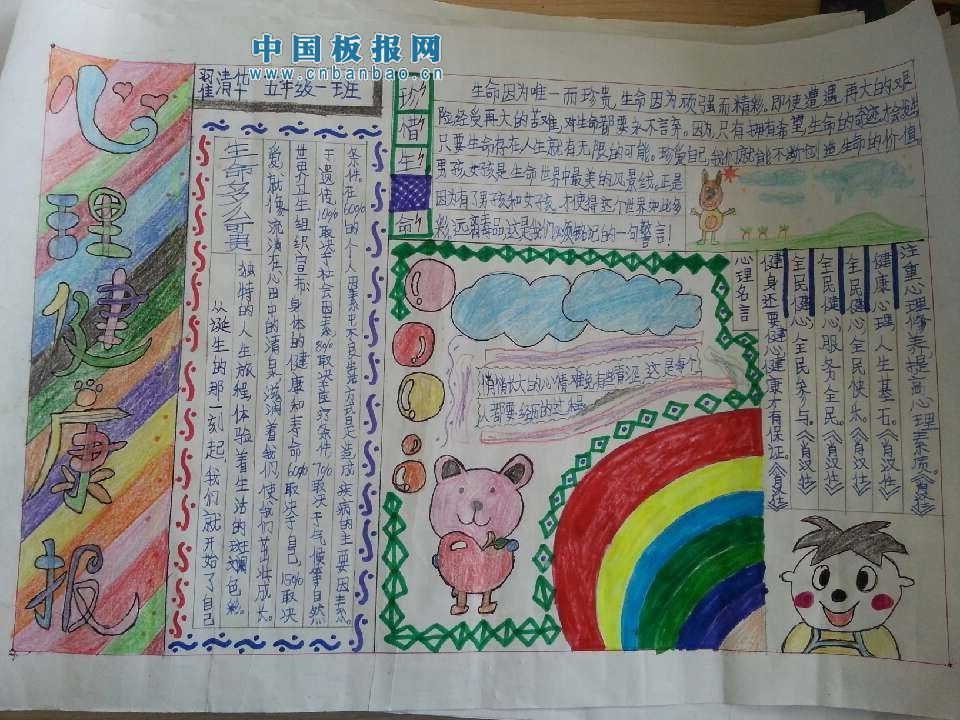 中国板报网
www.cnbanbao.cn
心理健康报
翟清华 五年级一班
生命多么奇真
从诞生的那一刻起,我们就开始了自己
独特的人生旅程,体验着生活的斑斓色彩。
爱就像流淌在心田中的清泉,滋润着我们,使我们茁壮成长。
世界卫生组织宣布:身体的健康和寿命60%取决于自己,15%取决
于遗传,10%取决于社会因素,8%取决于医疗条件,7%取决于气候等自然
条件。在60%的个人因素中,不良生活方式自是造成疾病的主要因素。
珍
惜
生
命
生命因为唯一而珍贵,生命因为顽强而精彩。即使遭遇再大的艰
险,经受再大的苦难,对生命都要永不言弃。因为,只有拥有希望,生命的奇迹才会诞生
只要生命存在,人生就有无限的可能。珍爱自己,我们就能不断创造生命的价值。
男孩,女孩是生命世界中最美的风景线。正是
因为有了男孩和女孩,才使得这个世界如此多
彩。远离毒品,这是我们必须铭记的一句警言!
悄悄长大的心情,难免有些窘涩,这是每个
人都要经历的过程
心理名言
健身还要健心,健康才有保证。《肖汉仕》
全民健心,全民参与。《肖汉仕》
全民健心,服务全民。《肖汉仕》
全民健心,全民快乐。《肖汉仕》
健康心理,人生基石。《肖汉仕》
注重心理修养,提高心理素质。《肖汉仕》